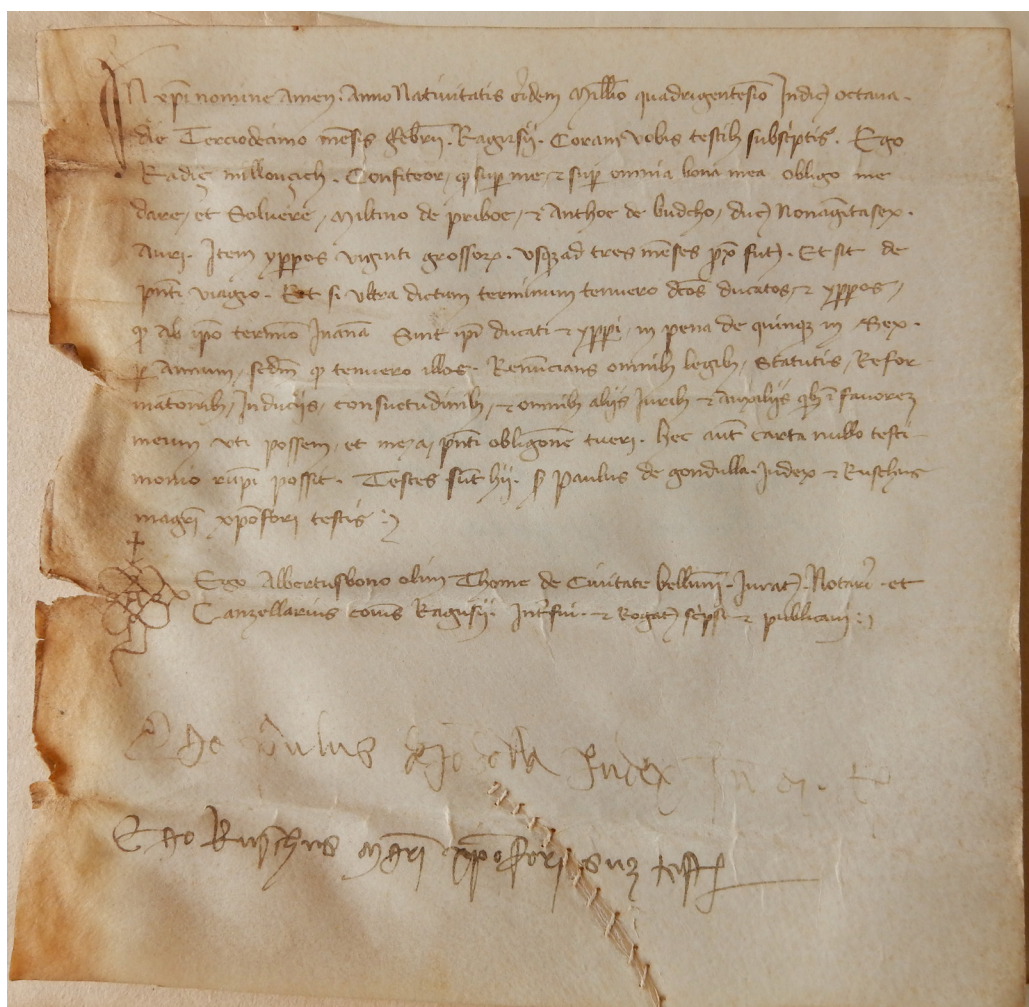 IN xpi nomine Amen. Anno Nativitatis eiusdem Mill̅io quadrigentesi̅o Indic̅ octava.
die Terciodecimo me̅sis febr̅ii. Ragusii. Coram vobis testib̅ subsc̅iptis. Ego
Radiç millouçich. Confiteor, q̅ sup̅ me, ⁊ sup̅ omnia bona mea obligo me
dare, et Soluere, Miltino de priboe, ⁊ Anthoe de budcho, duc̅ Nonagi̅tasex.
Auri. Item yp̅pos viginti grossorꝝ. vsqꝫ ad tres me̅ses p̅x fut̅. Et sit de
p̅nti viagio. Et si vltra dictum terminum tenuero dc̅os ducatos, ⁊ yp̅pos,
q̅ ab ip̅o termi̅o Inan̅a Sint ip̅i ducati ⁊ yp̅pi, in pena de quinqꝫ in Sex.
p̅ Annum, sedm̅ q̅ tenuero illos. Renu̅cians omnib̅ legib̅, Statutis, Refor
matio̅ib̅, Induciis, consuetudinib̅, ⁊ omnib̅ aliis Iurib̅ ⁊ auxiliis qb̅ i̅ fauorez
meum vti possem, et me a, p̅nti oblig̅one tueri. hec aut̅ carta nullo testi
monio ru̅pi possit. Testes su̅t hii. S̅ Paulus de gondulla. Iudex ⁊ Ruschus
magr̅i xp̅ofori testis :)
Ego Albertusbono olim Thome de Ciuitate bellun̅i. Iurat̅. Notari̅. et
Canzellarius co̅is Ragusii. Int̅fui. ⁊ Rogat̅ sc̅ipsi ⁊ publicaui :)
Ego Iudex
Ego Ruschus magr̅i xp̅ofori suz test̅